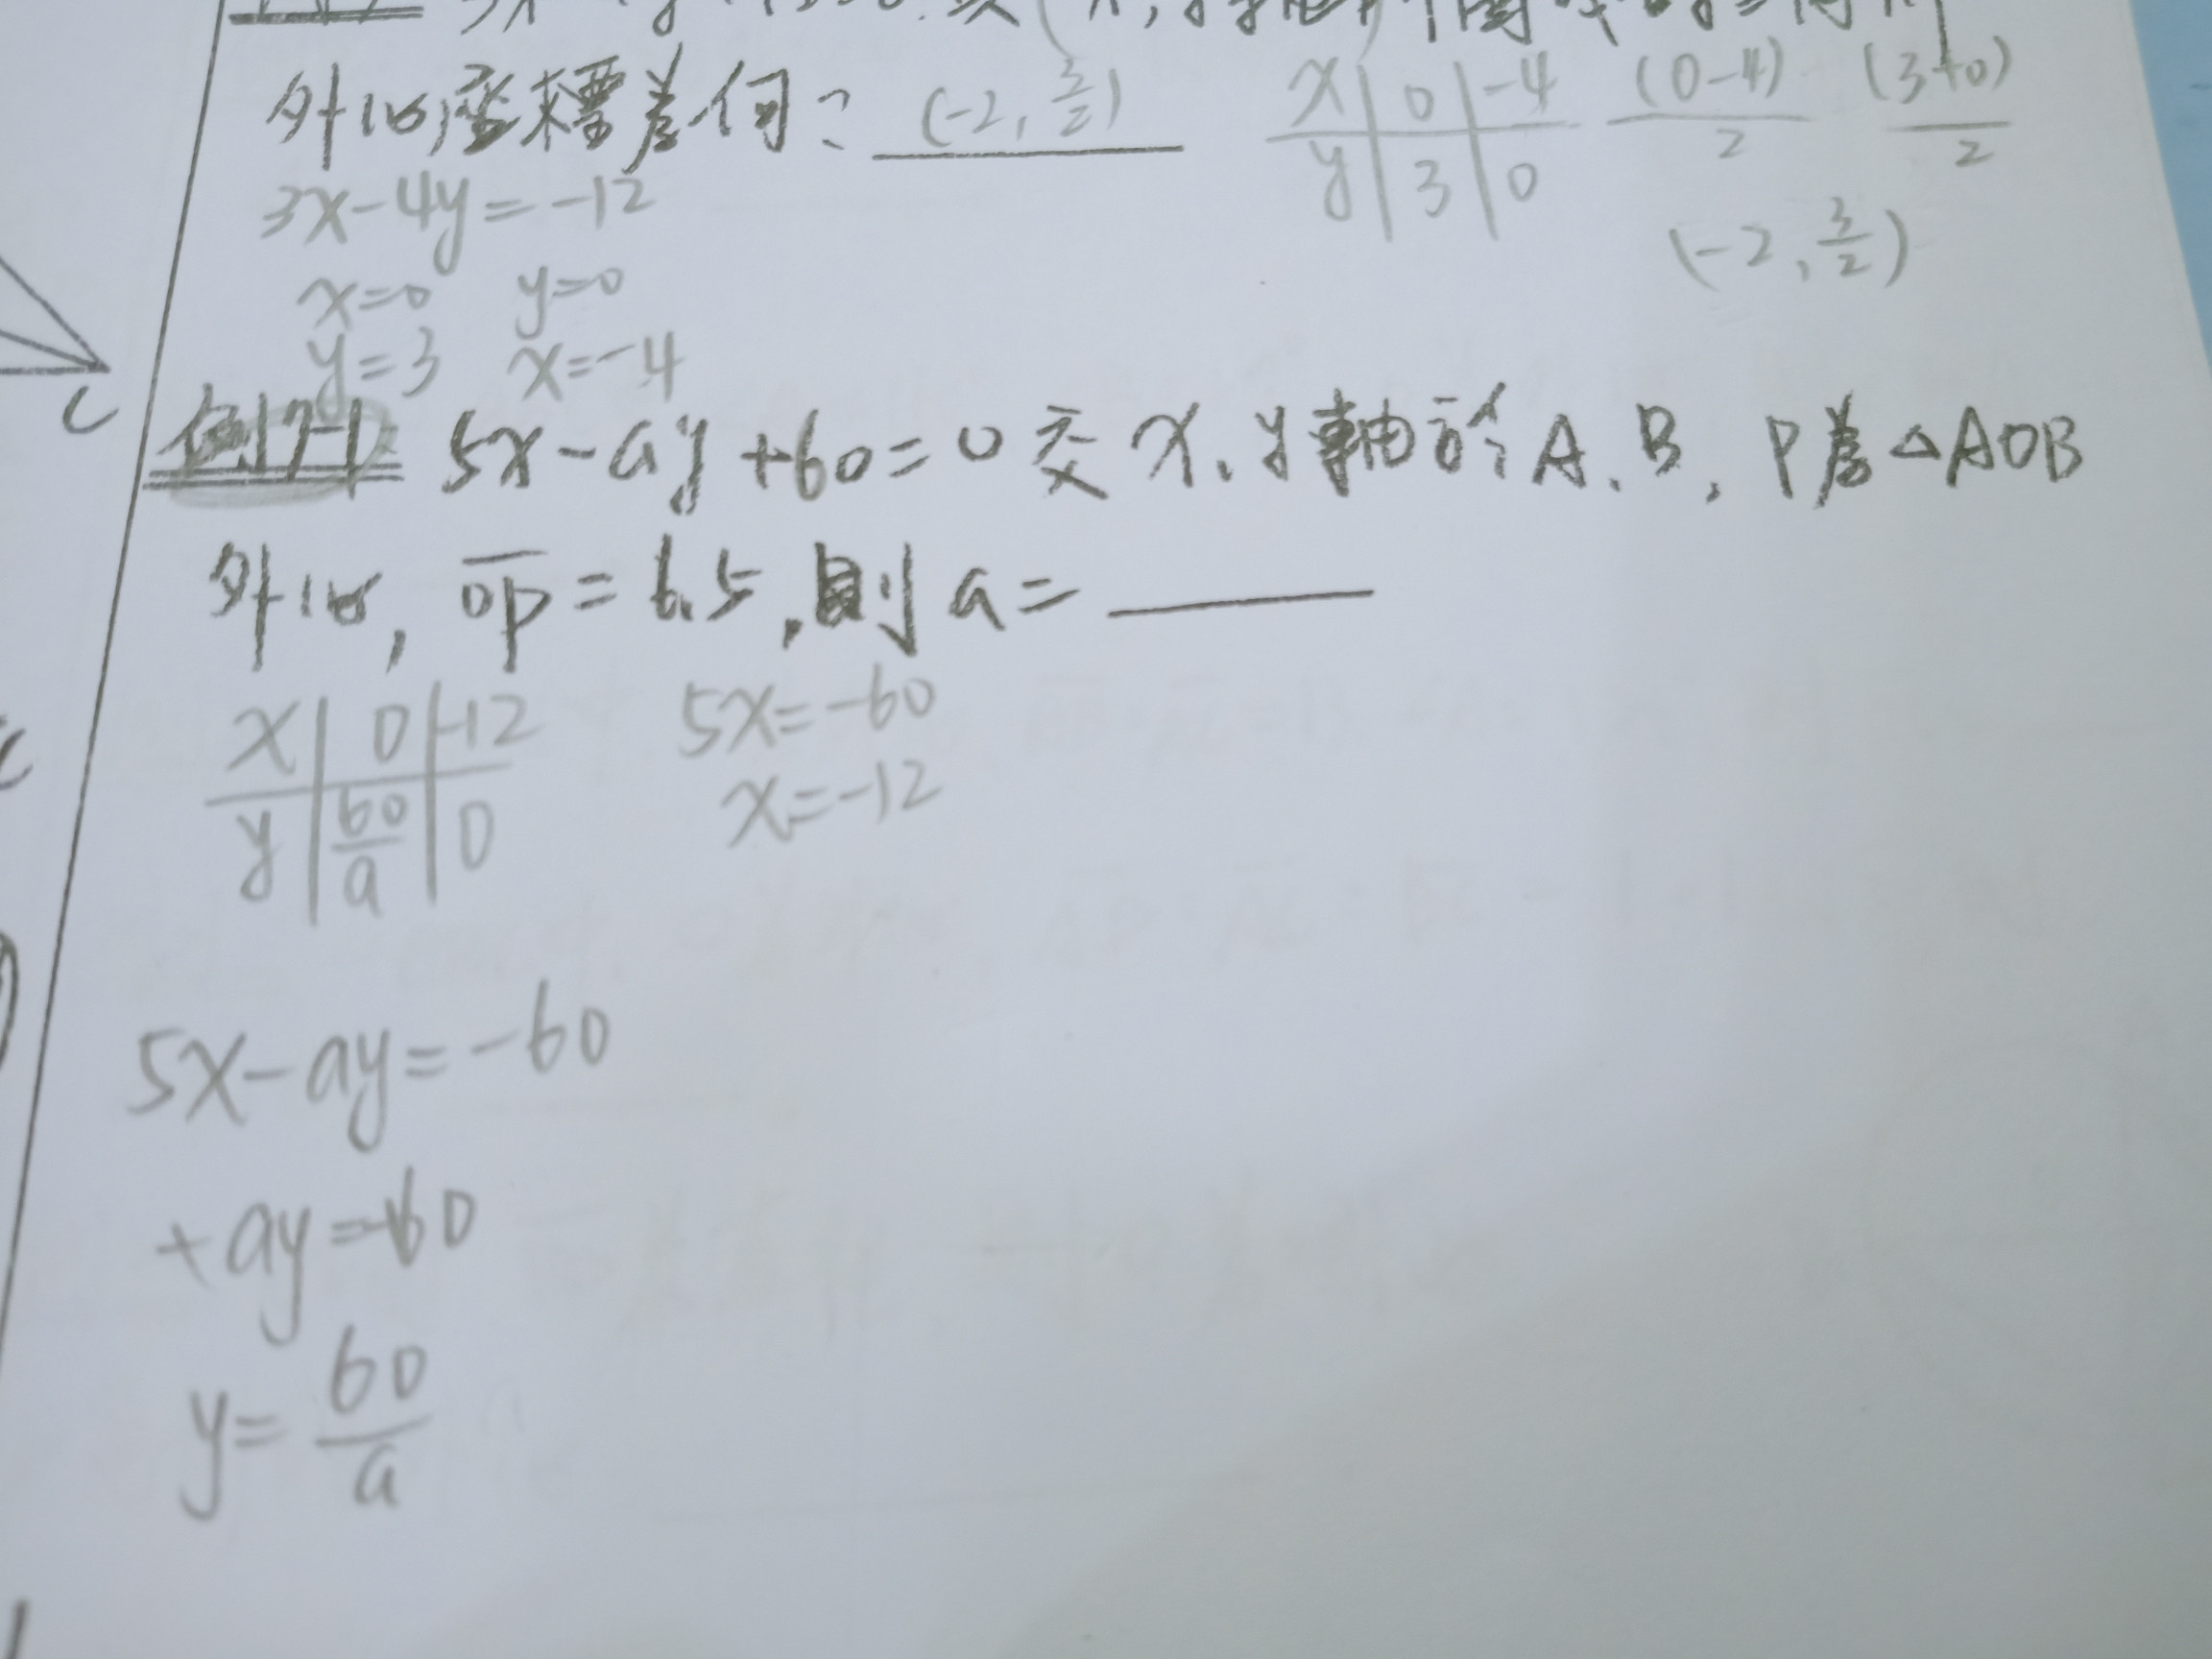 外心座標為何？ (-2, 3/2)
x | 0 | -4
y | 3 | 0
(0-4)/2 (3+0)/2
(-2, 3/2)
3x-4y=-12
x=0 y=0
y=3 x=-4
C
例7-1 5x-ay+60=0交x、y軸於A、B, P為△AOB
外心, OP=6.5, 則a=
x | 0 | -12
y | 60/a | 0
5x=-60
x=-12
5x-ay=-60
+ay=60
y=60/a